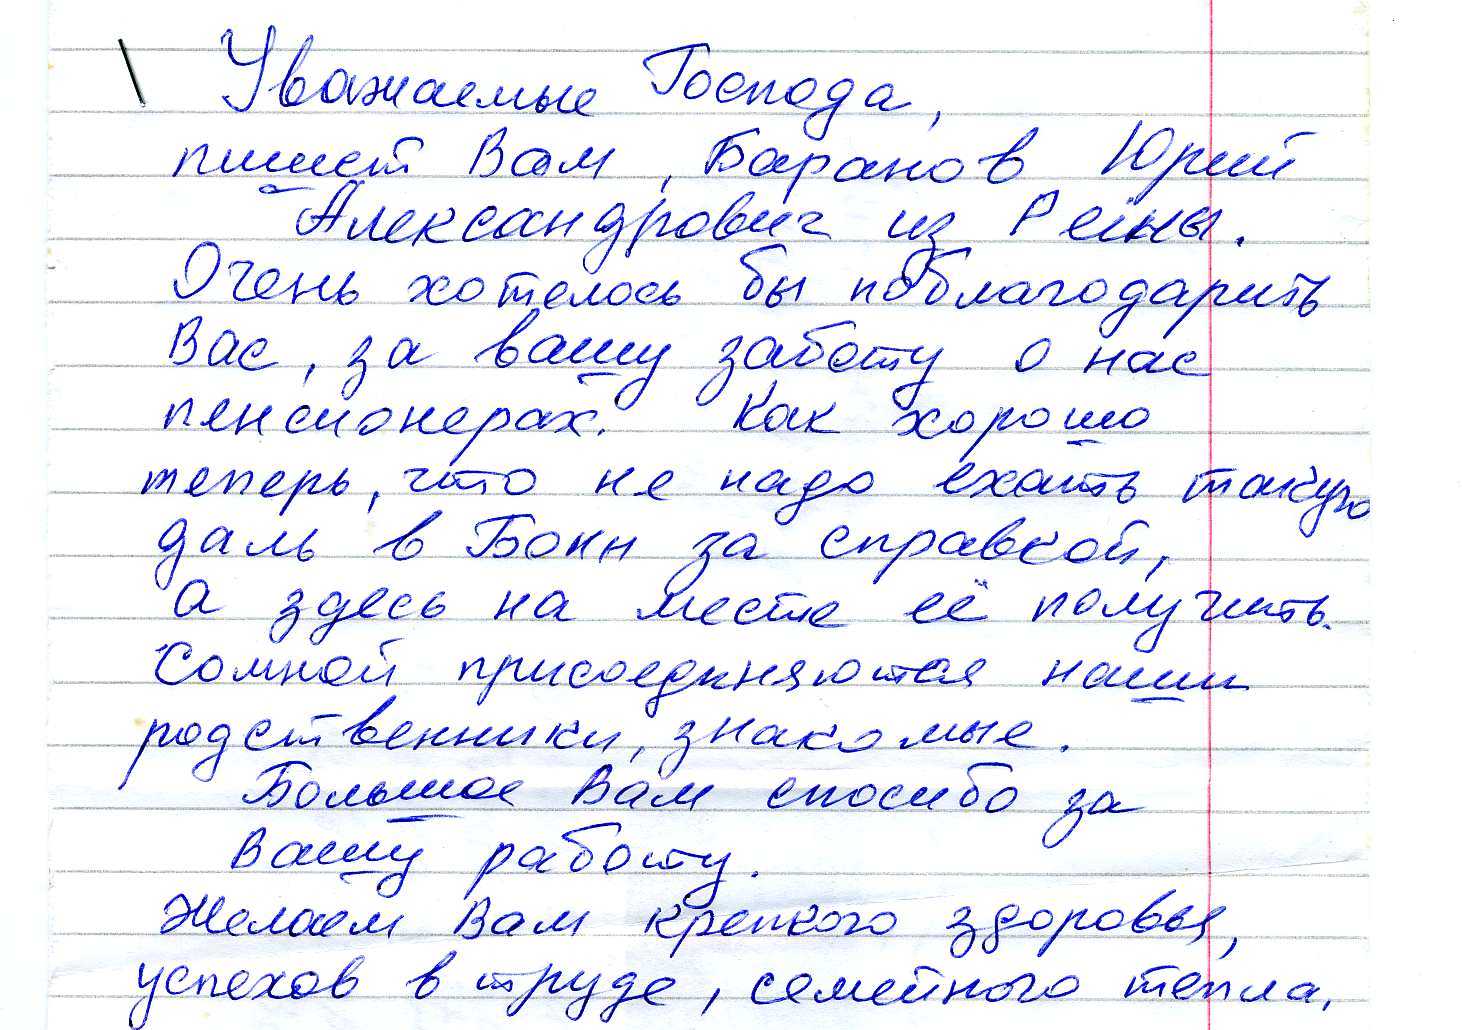 Уважаемые Господа,
пишет Вам, Баранов Юрий
Александрович из Рейны.
Очень хотелось бы поблагодарить
Вас, за вашу заботу о нас
пенсионерах. Как хорошо
теперь, что не надо ехать такую
даль в Бонн за справкой,
а здесь на месте её получить.
Сомной присоединяются наши
родственники, знакомые.
Большое Вам спосибо за
Вашу работу.
Желаем Вам крепкого здоровья,
успехов в труде, семейного тепла,